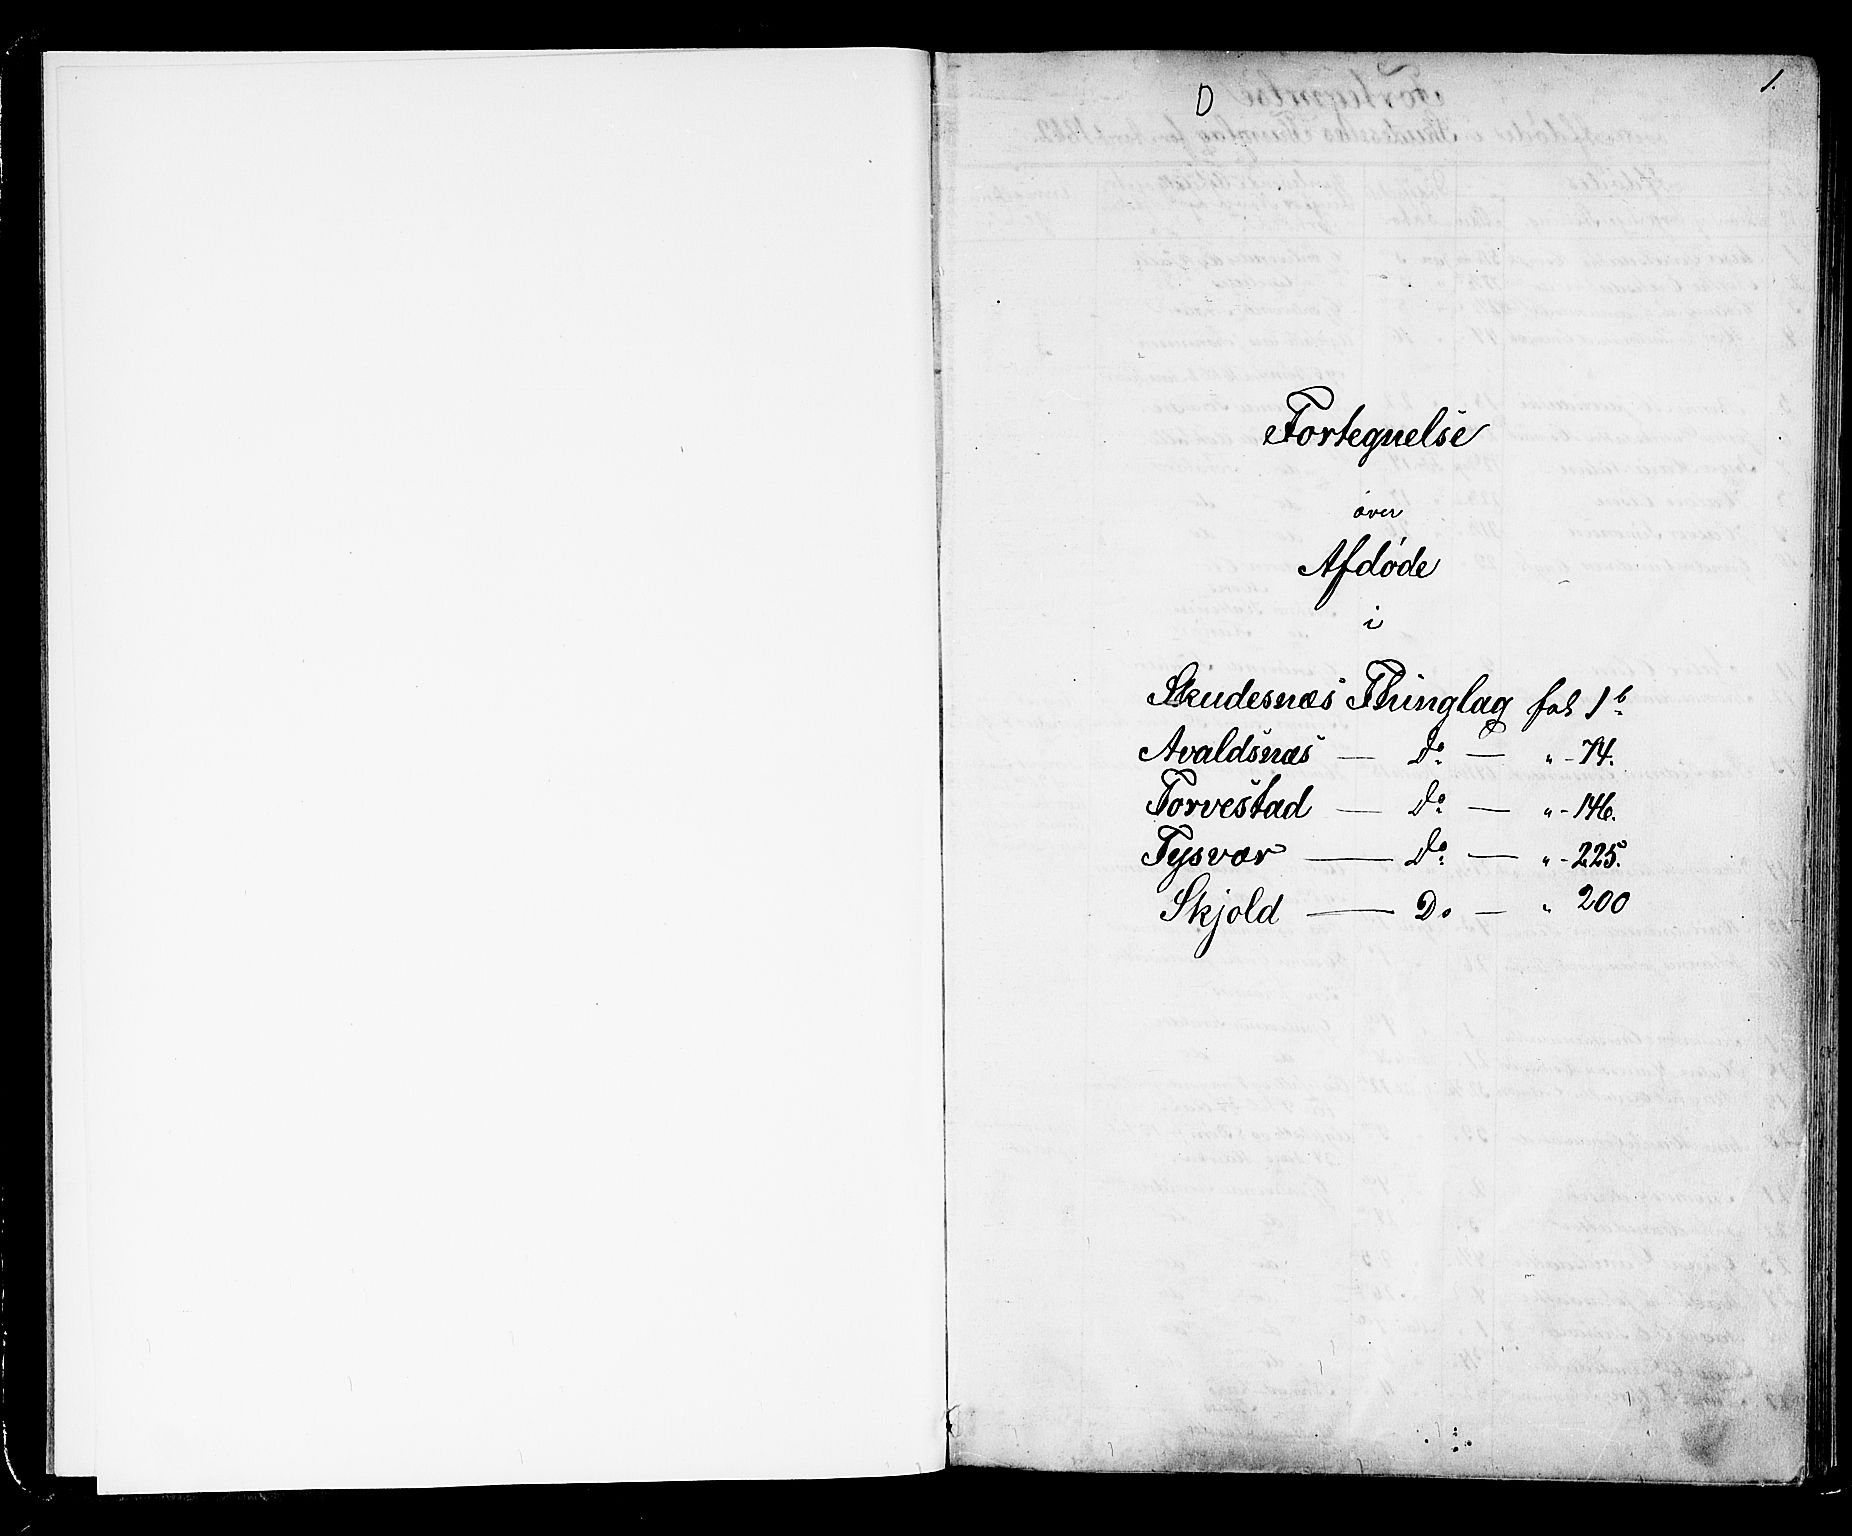 D
1.
Fortegnelse
over
Afdøde
i
Skudesnæs Thinglag fol 1 b
Avaldsnæs — Do — " - 74.
Torvestad — Do — " - 146.
Tysvær — Do — " - 225.
Skjold — Do — " 200